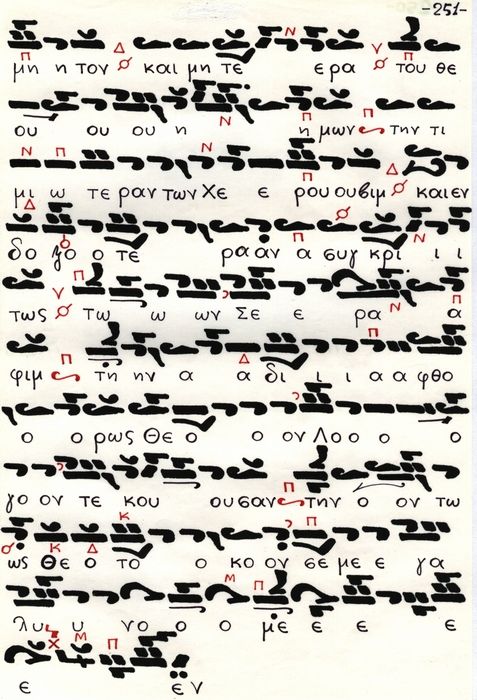 -251-
μη η τον και μη τε ε ρα του θε
ου ου ου η η μων την τι
μι ω τε ραν των Χε ε ρου ου βιμ και εν
δο ξο ο τε ρα αν α συγ κρι ι ι
τως τω ω ων Σε ε ρα α
φιμ τη ην α α δι ι ι α α φθο
ο ο ρως Θε ο ο ον Λο ο ο ο
γο ον τε κου ου σαν την ο ον τω
ως Θε ο το ο κο ον σε με ε γα
λυ υ νο ο ο με ε ε ε
ε εν